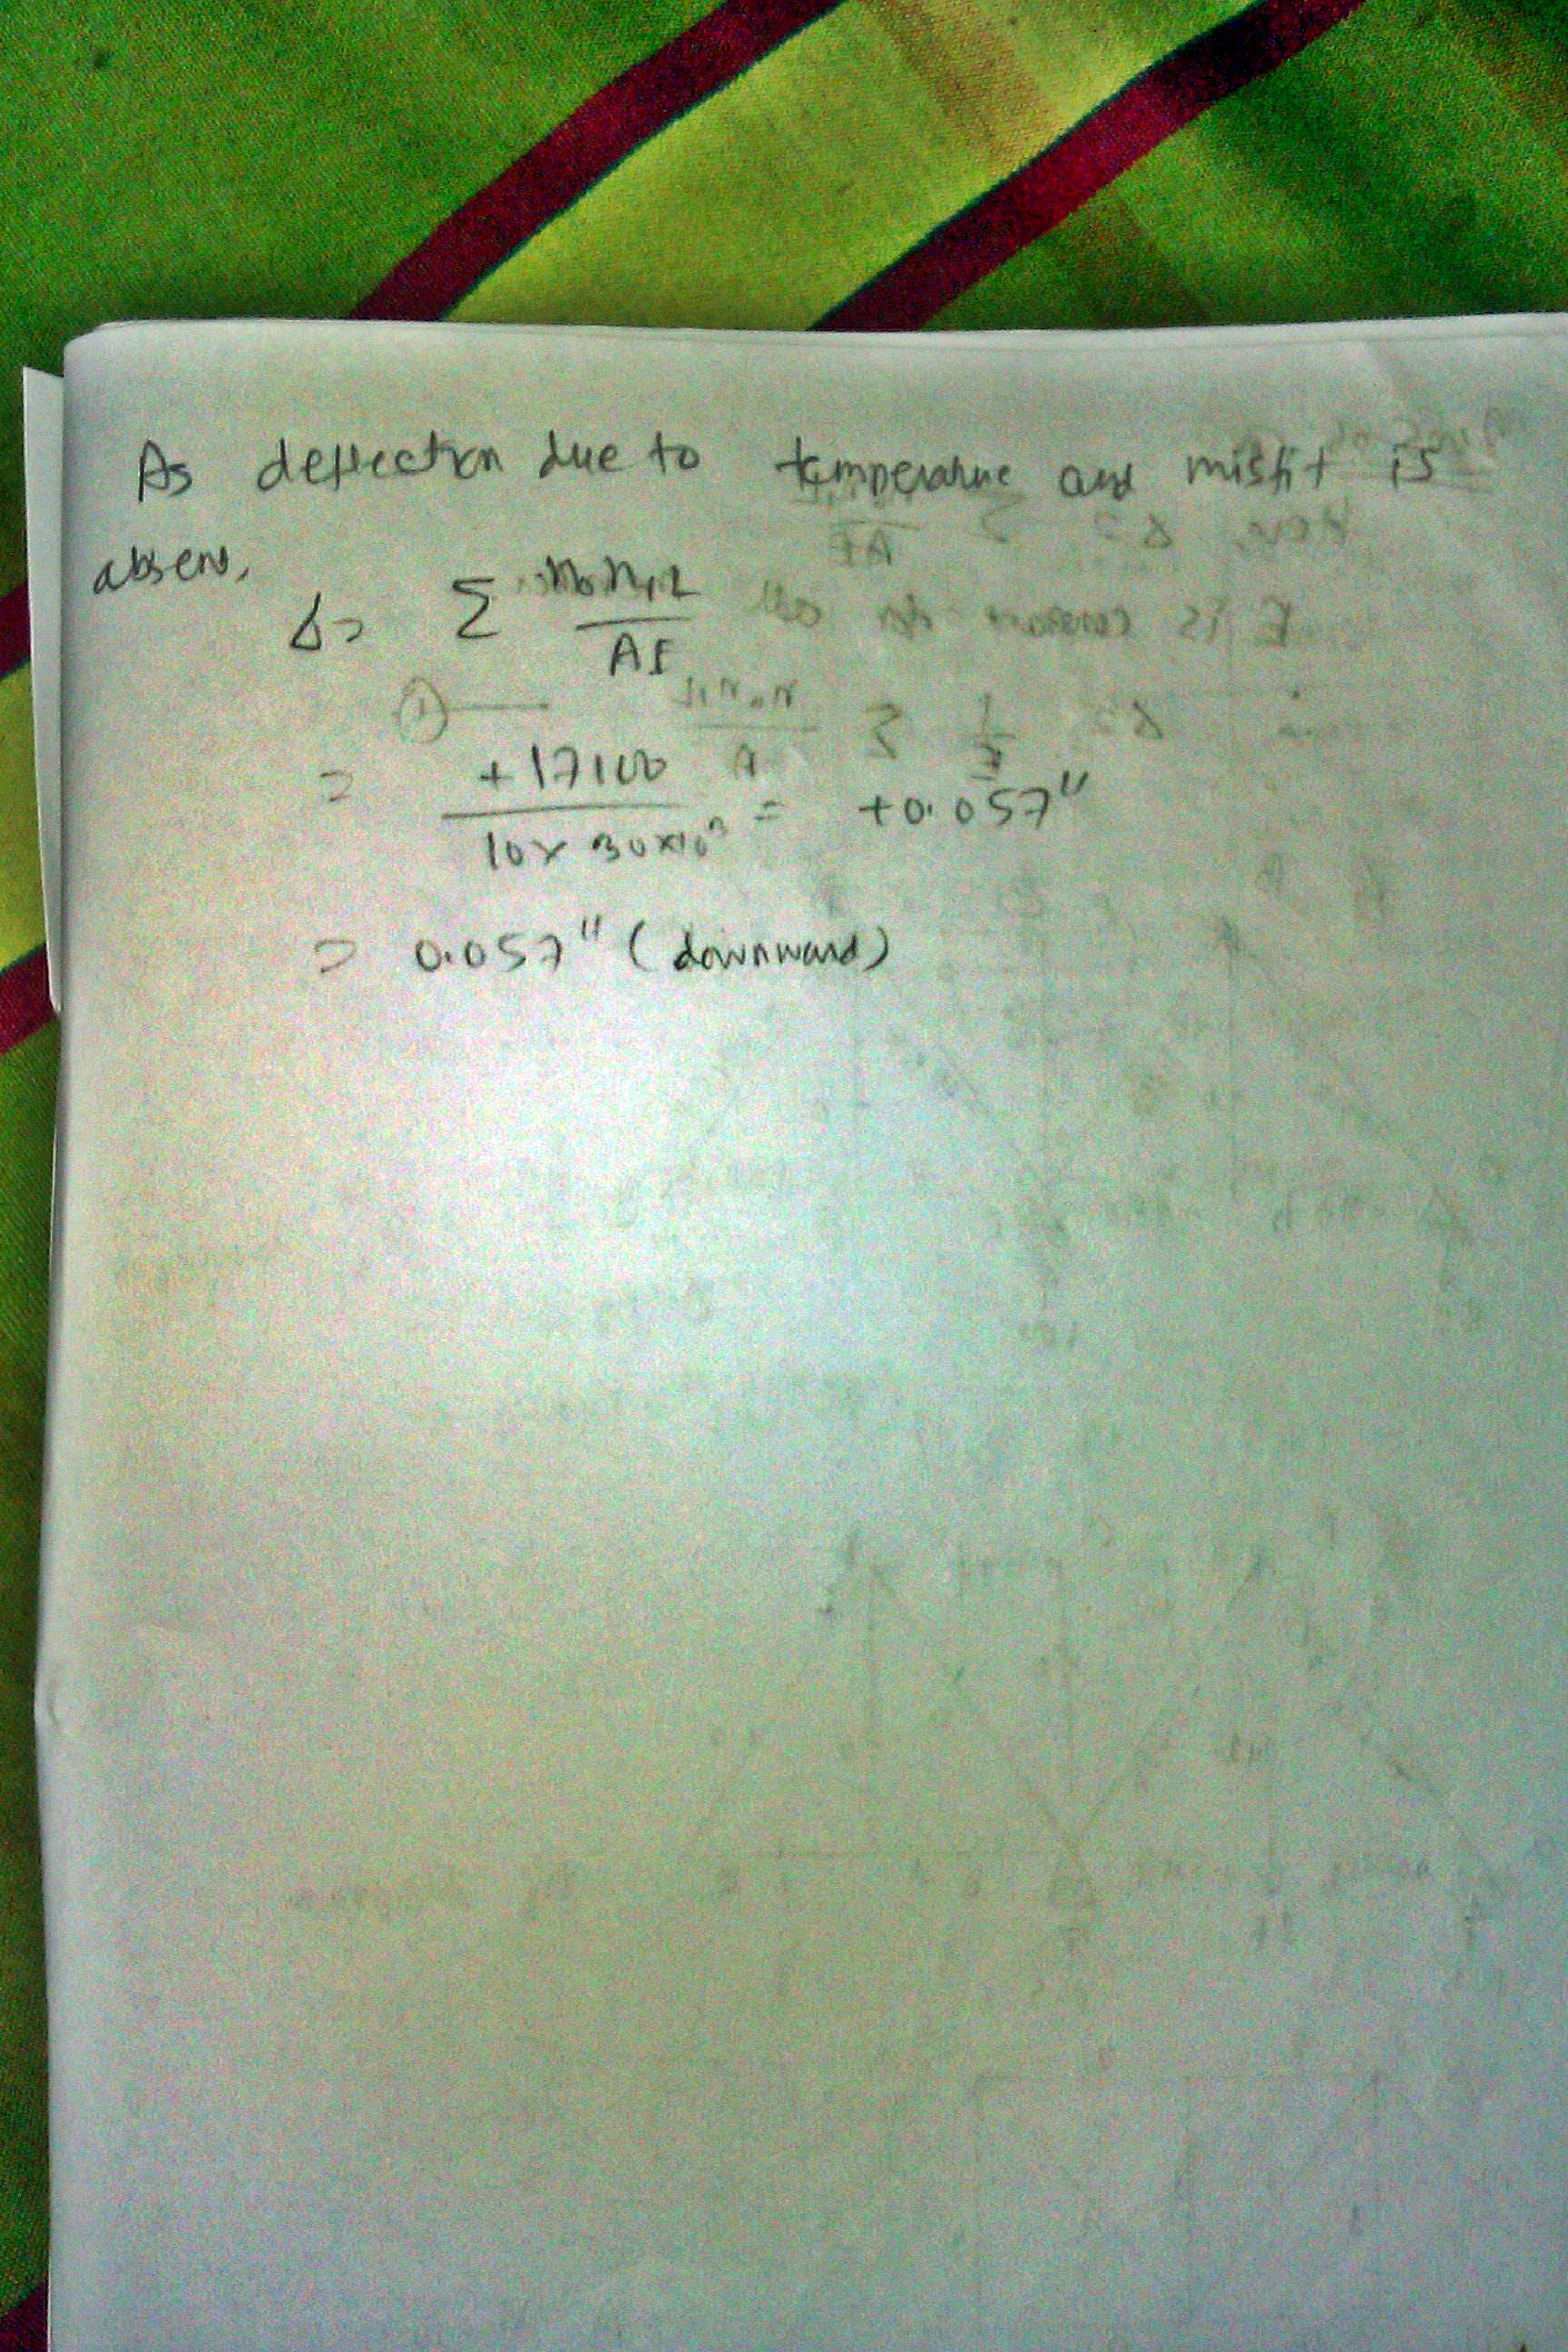 As deflection due to temperature and misfit is
absent,
Δ= Σ N₀N₁L / AE
= +17100 / 10 x 30x10³ = +0.057"
= 0.057" (downward)